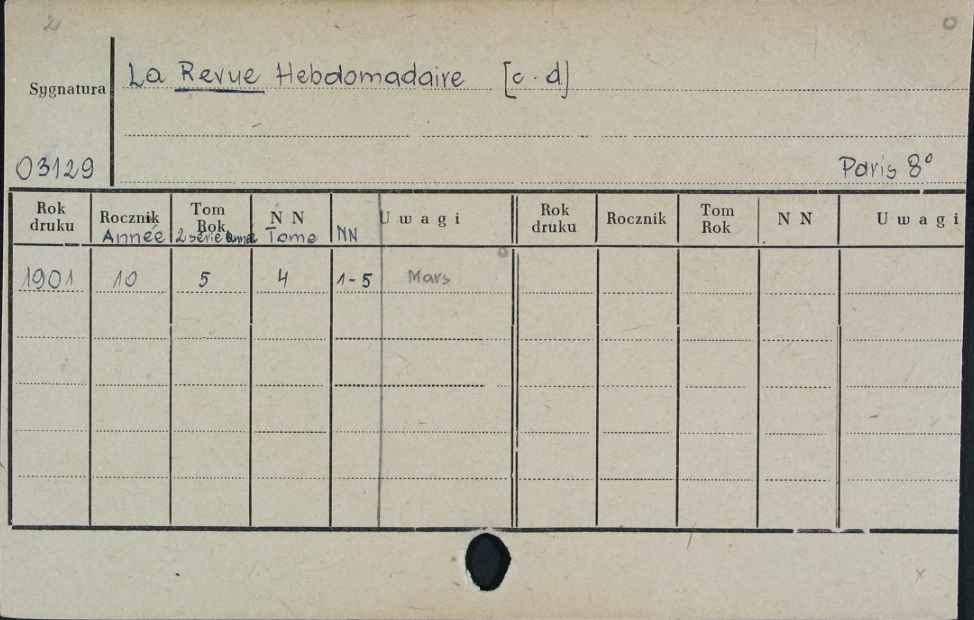 2
Sygnatura La Revue Hebdomadaire [c. d]
03129 Paris 8°
Rok druku Rocznik Tom Rok N N U w a g i Rok druku Rocznik Tom Rok N N U w a g i
Année 2 série année Tome NN
1901 10 5 4 1-5 Mars
x